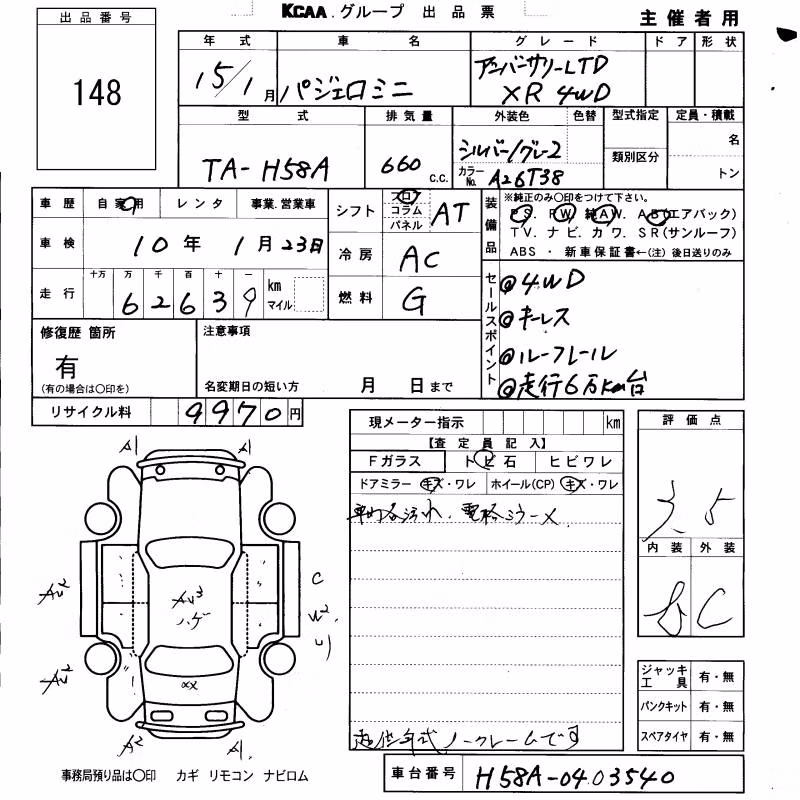 KCAA.グループ 出品票
主催者用
出品番号
148
年式 車名 グレード ドア 形状
15/1月 パジェロミニ アニバーサリーLTD
XR 4WD
型式 排気量 外装色 色替 型式指定 定員・積載
TA-H58A 660 c.c. シルバー/グレー2 類別区分 名
カラーNo. A26T38 トン
車歴 自家用 レンタ 事業.営業車
車検 10年 1月23日
走行 十万 万 千 百 十 一 km
62639 マイル
シフト フロア コラム パネル AT
冷房 AC
燃料 G
装備品 ※純正のみ○印をつけて下さい。
PS. PW. 純AW. AB(エアバック)
TV. ナビ. カワ. SR(サンルーフ)
ABS ・ 新車保証書←(注) 後日送りのみ
セールスポイント
@4WD
@キーレス
@ルーフレール
@走行6万km台
修復歴 箇所 注意事項
有
(有の場合は○印を) 名変期日の短い方 月 日まで
リサイクル料 9970円
現メーター指示 km
【査定員記入】
Fガラス トビ石 ヒビワレ
ドアミラー キズ・ワレ ホイール(CP) キズ・ワレ
電格ミラー✕
ノークレームです
評価点
3.5
内装 外装
C
A1 A1
C
AU3
ハゲ
W2
XX
A2 A1
ジャッキ工具 有・無
パンクキット 有・無
スペアタイヤ 有・無
事務局預り品は○印 カギ リモコン ナビロム
車台番号 H58A-0403540